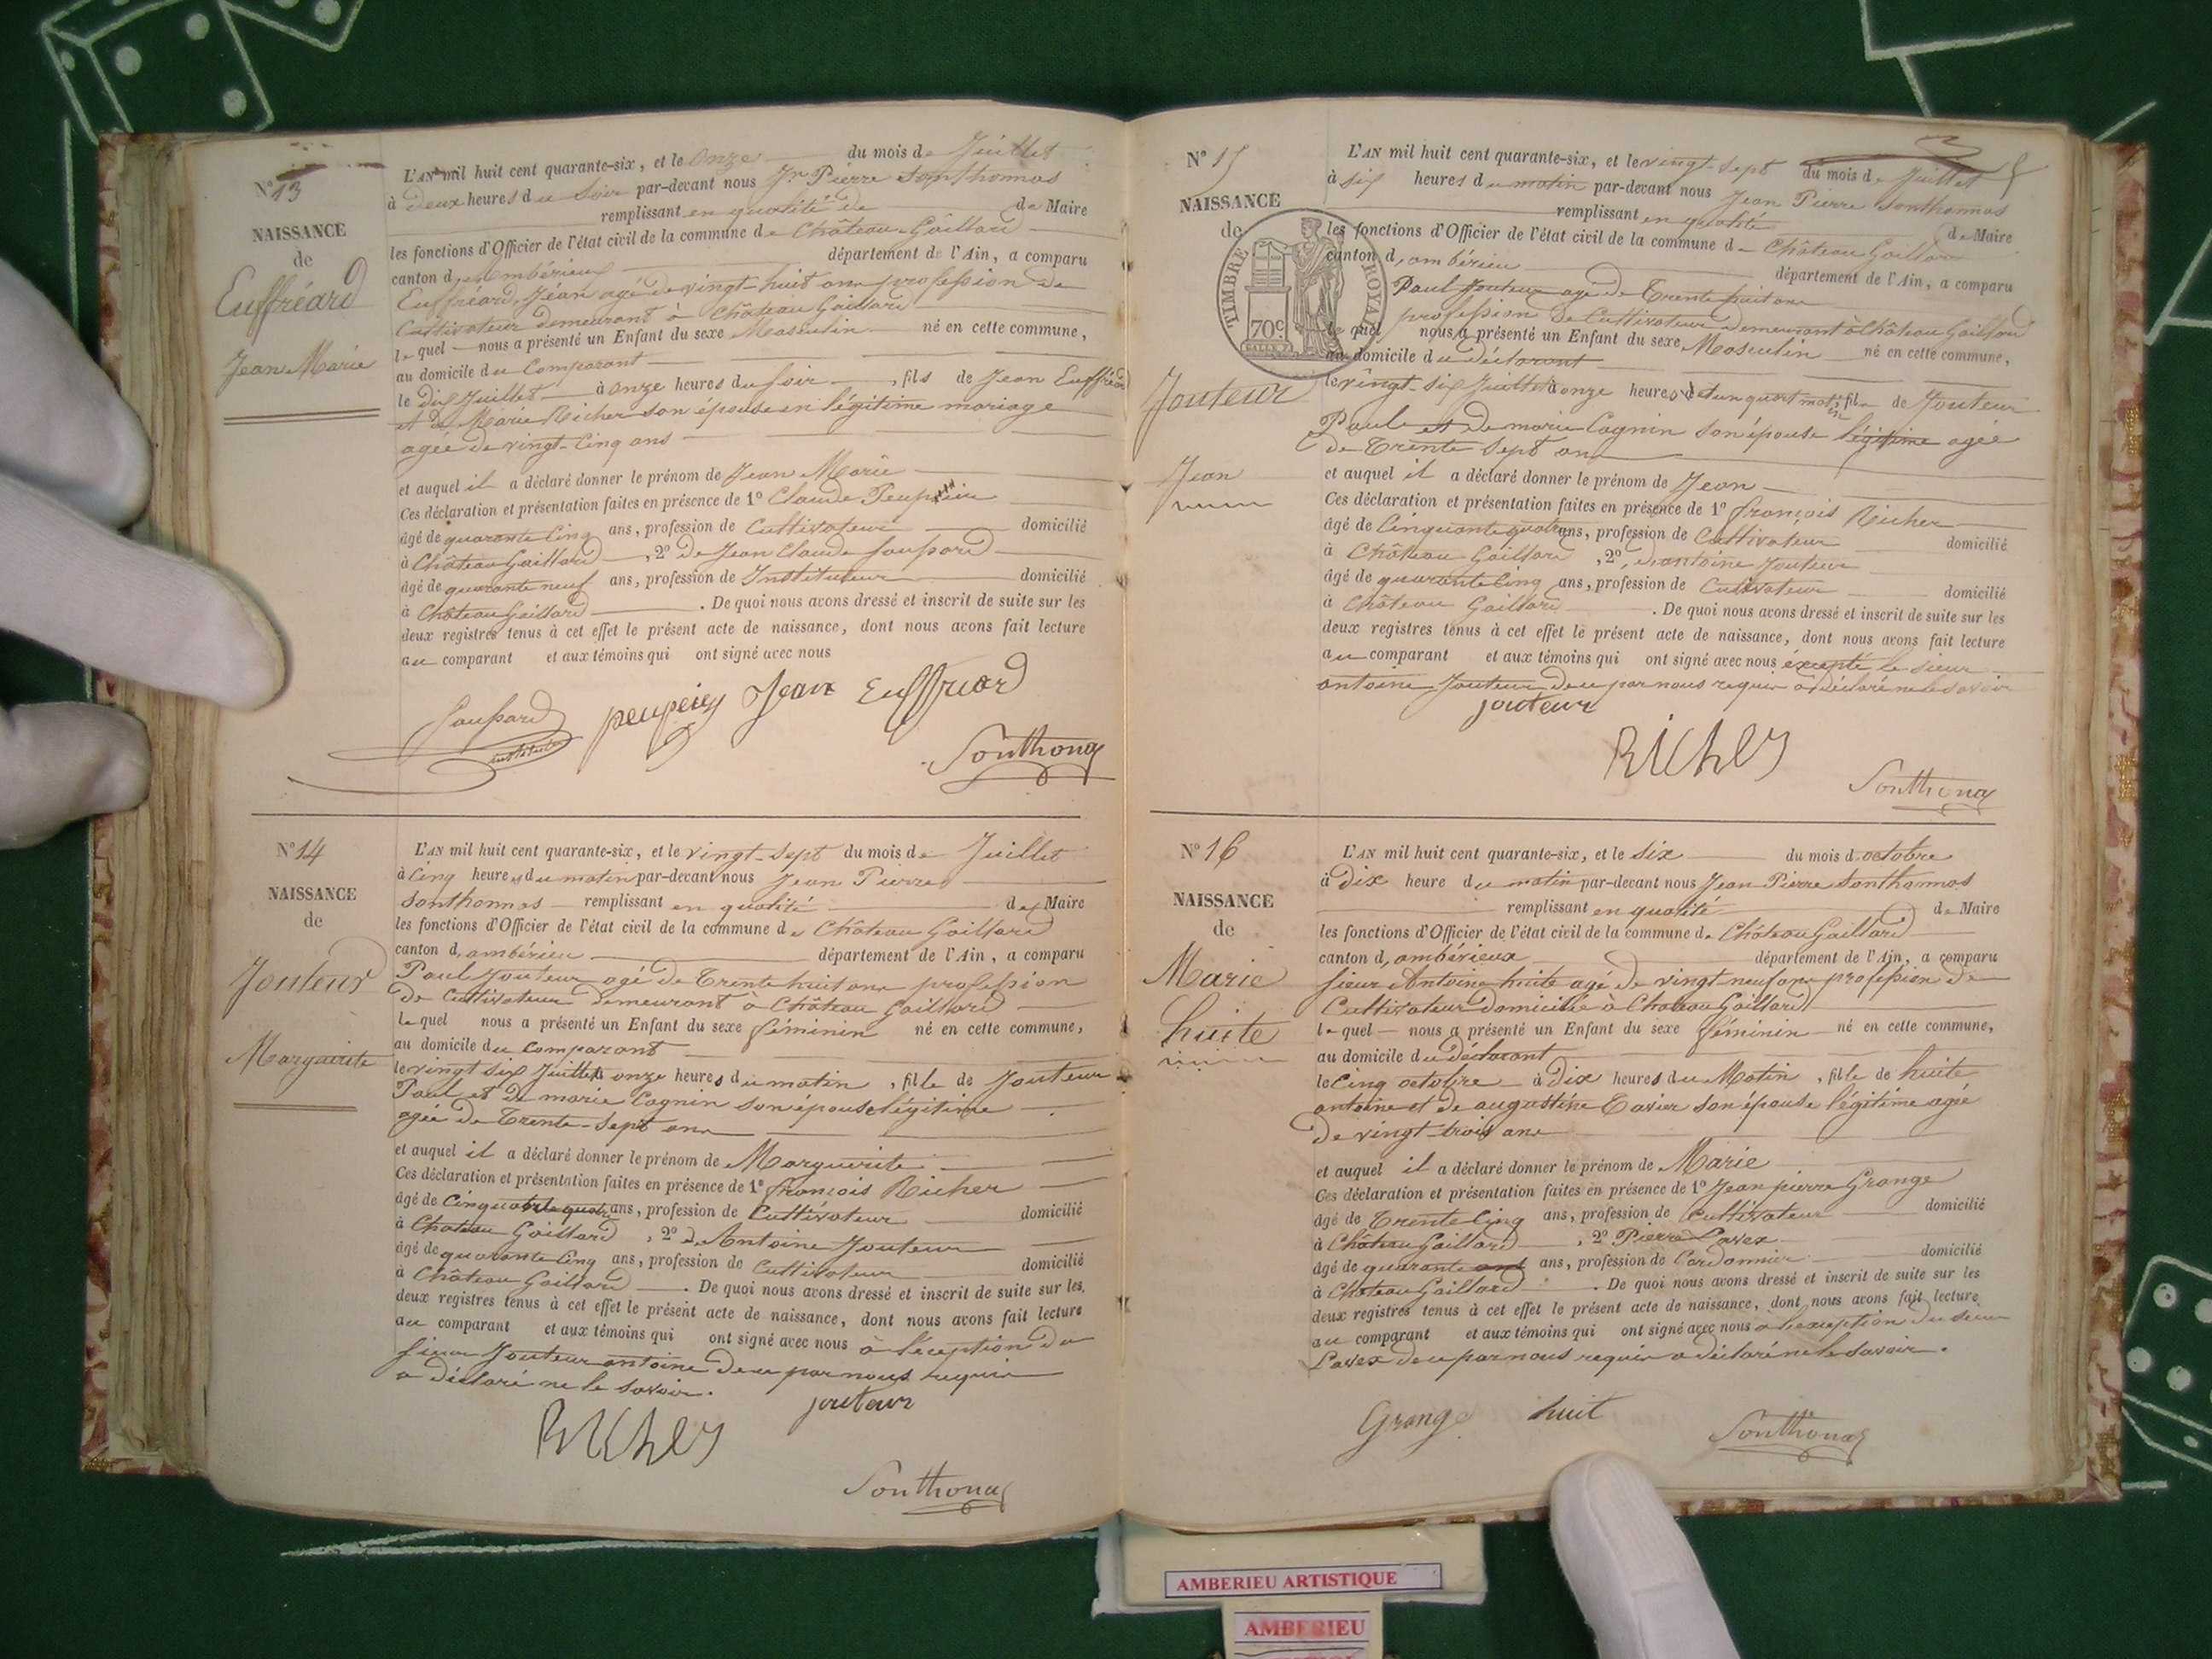 N° 13
NAISSANCE
de
Euffréard
Jean Marie
L'AN mil huit cent quarante-six, et le onze du mois de Juillet
à deux heures du soir par-devant nous Jn Pierre Sonthonnas
remplissant en qualité de de Maire
les fonctions d'Officier de l'état civil de la commune de Château-Gaillard
canton d'ambérieux département de l'Ain, a comparu
Euffréard, Jean agé de vingt-huit ans profession de
Cultivateur demeurant à Château Gaillard
lequel nous a présenté un Enfant du sexe Masculin né en cette commune,
au domicile du Comparant
le dix Juillet à onze heures du soir, fils de Jean Euffréard
et de Marie Richer son épouse en légitime mariage
agée de vingt-cinq ans
et auquel il a déclaré donner le prénom de Jean Marie
Ces déclaration et présentation faites en présence de 1° Claude
âgé de quarante cinq ans, profession de Cultivateur domicilié
à Château Gaillard, 2° de Jean Claude
âgé de quarante neuf ans, profession de Instituteur domicilié
à Château Gaillard. De quoi nous avons dressé et inscrit de suite sur les
deux registres tenus à cet effet le présent acte de naissance, dont nous avons fait lecture
au comparant et aux témoins qui ont signé avec nous
Jean Euffréard
Sonthonas
N° 14
NAISSANCE
de
Jouteur
Marguerite
L'AN mil huit cent quarante-six, et le vingt-sept du mois de Juillet
à cinq heures du matin par-devant nous Jean Pierre
Sonthonnas remplissant en qualité de Maire
les fonctions d'Officier de l'état civil de la commune de Château Gaillard
canton d'ambérieu département de l'Ain, a comparu
Paul Jouteur agé de trente huit ans profession
de Cultivateur demeurant à Château Gaillard
lequel nous a présenté un Enfant du sexe féminin né en cette commune,
au domicile du comparant
le vingt six Juillet à onze heures du matin, fille de Jouteur
Paul et de marie Cagnin son épouse légitime
agée de trente-sept ans
et auquel il a déclaré donner le prénom de Marguerite
Ces déclaration et présentation faites en présence de 1° françois Richer
âgé de cinquante quatre ans, profession de Cultivateur domicilié
à Chateau Gaillard, 2° d'Antoine Jouteur
âgé de quarante cinq ans, profession de Cultivateur domicilié
à Château Gaillard. De quoi nous avons dressé et inscrit de suite sur les
deux registres tenus à cet effet le présent acte de naissance, dont nous avons fait lecture
au comparant et aux témoins qui ont signé avec nous à l'éception du
sieur Jouteur antoine de ce par nous requis
a déclaré ne le savoir.
jouteur
Richer
Sonthonas
N° 15
NAISSANCE
de
Jouteur
Jean
TIMBRE ROYAL
70c
L'AN mil huit cent quarante-six, et le vingt-sept du mois de Juillet
à six heures du matin par-devant nous Jean Pierre Sonthonnas
remplissant en qualité de Maire
les fonctions d'Officier de l'état civil de la commune de Château Gaillard
canton d'ambérieu département de l'Ain, a comparu
Paul Jouteur agé de trente huit ans
profession de Cultivateur demeurant à Château Gaillard
lequel nous a présenté un Enfant du sexe Masculin né en cette commune,
au domicile du déclarant
le vingt-six Juillet à onze heures et un quart matin, fils de Jouteur
Paul et de marie Cagnin son épouse légitime agée
de trente sept ans
et auquel il a déclaré donner le prénom de Jean
Ces déclaration et présentation faites en présence de 1° françois Richer
âgé de cinquante quatre ans, profession de Cultivateur domicilié
à Château Gaillard, 2° d'antoine Jouteur
âgé de quarante cinq ans, profession de Cultivateur domicilié
à Château Gaillard. De quoi nous avons dressé et inscrit de suite sur les
deux registres tenus à cet effet le présent acte de naissance, dont nous avons fait lecture
au comparant et aux témoins qui ont signé avec nous éxcepté le sieur
antoine Jouteur de ce par nous requis a déclaré ne le savoir
jouteur
Richer
Sonthonas
N° 16
NAISSANCE
de
Marie
huite
L'AN mil huit cent quarante-six, et le six du mois d'octobre
à dix heure du matin par-devant nous Jean Pierre Sonthonnas
remplissant en qualité de Maire
les fonctions d'Officier de l'état civil de la commune de Château Gaillard
canton d'ambérieux département de l'Ain, a comparu
sieur Antoine huite agé de vingt neuf ans profession de
Cultivateur domicilié à Chateau Gaillard
lequel nous a présenté un Enfant du sexe féminin né en cette commune,
au domicile du déclarant
le cinq octobre à dix heures du Matin, fille de huite
antoine et de augustine Tavier son épouse légitime agée
de vingt-trois ans
et auquel il a déclaré donner le prénom de Marie
Ces déclaration et présentation faites en présence de 1° Jean pierre Grange
âgé de trente cinq ans, profession de Cultivateur domicilié
à Château Gaillard, 2° Pierre Lavex
âgé de quarante ans ans, profession de Cordonnier domicilié
à Chateau Gaillard. De quoi nous avons dressé et inscrit de suite sur les
deux registres tenus à cet effet le présent acte de naissance, dont nous avons fait lecture
au comparant et aux témoins qui ont signé avec nous à l'exception du sieur
Lavex de ce par nous requis a déclaré ne le savoir.
Grange huit
Sonthonas
AMBERIEU ARTISTIQUE
AMBERIEU